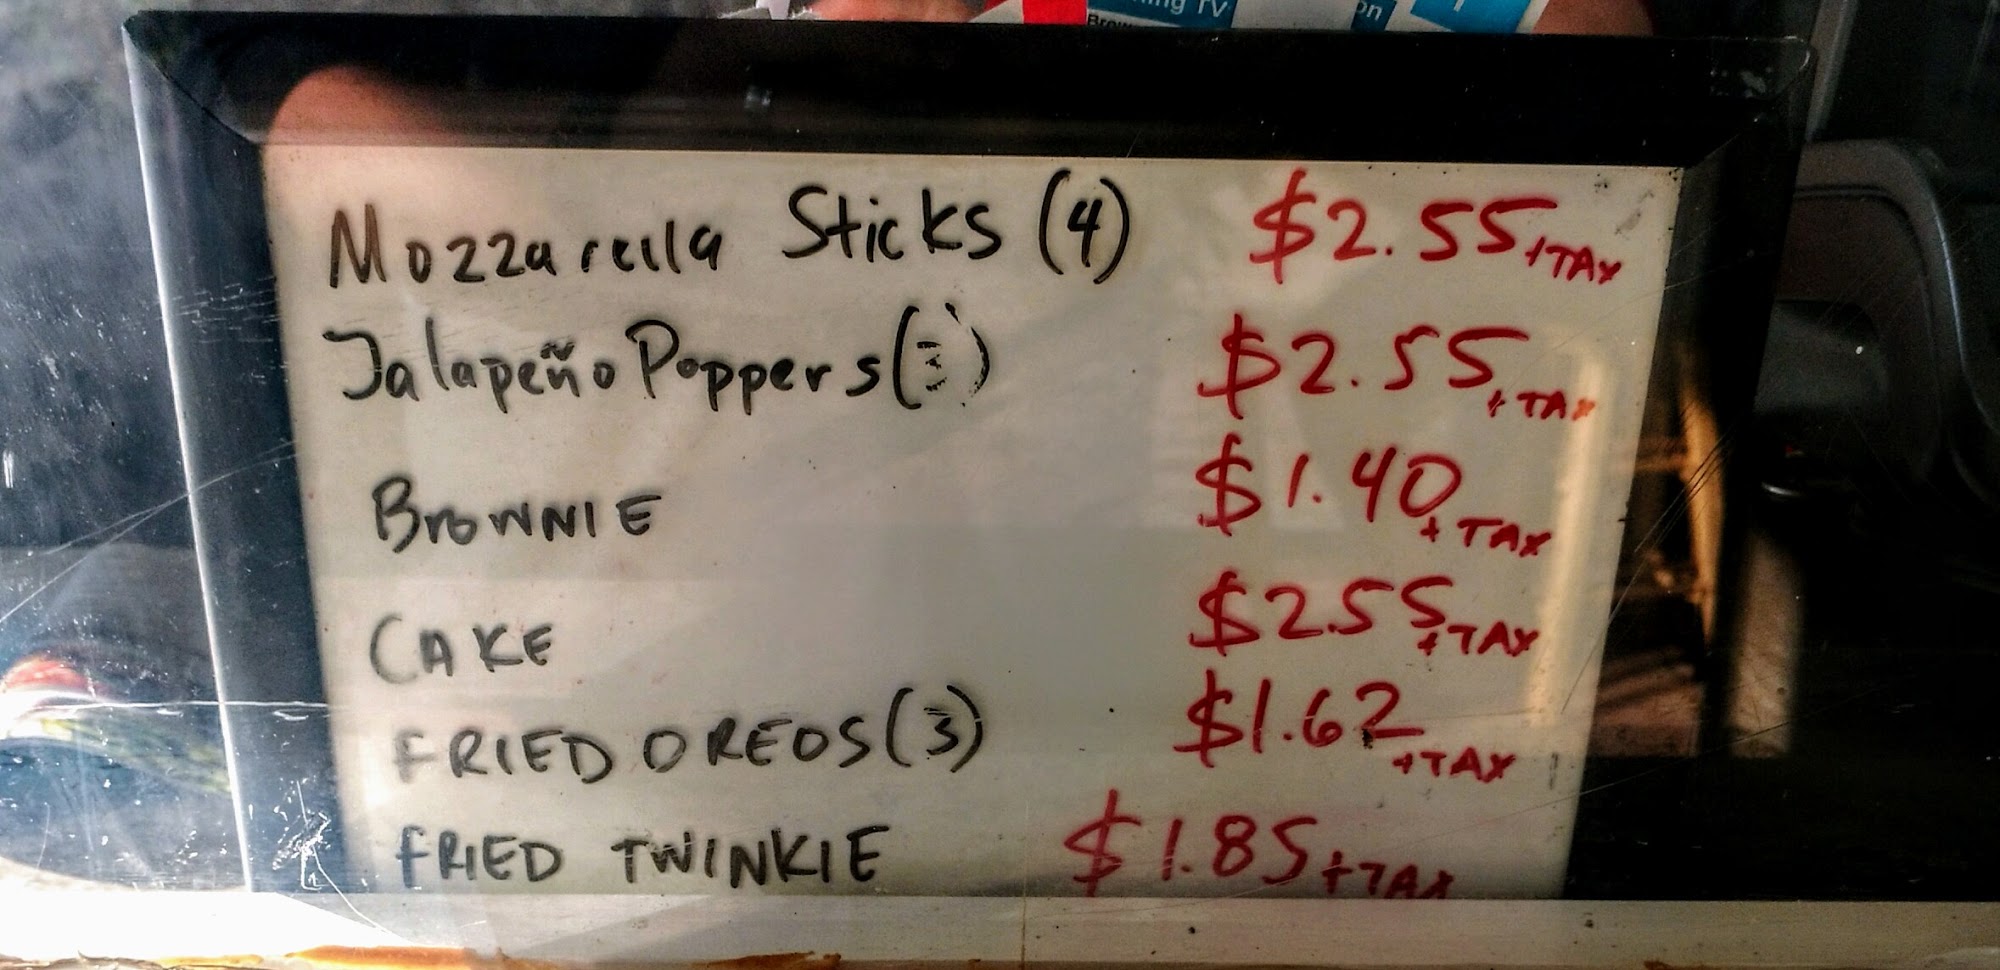 ng TV
on
Mozzarella Sticks (4) $2.55 +TAX
Jalapeño Poppers (3) $2.55 +TAX
BrowNIE $1.40 +TAX
CAKE $2.55 +TAX
FRIED OREOS (3) $1.62 +TAX
FRIED TWINKIE $1.85 +TAX